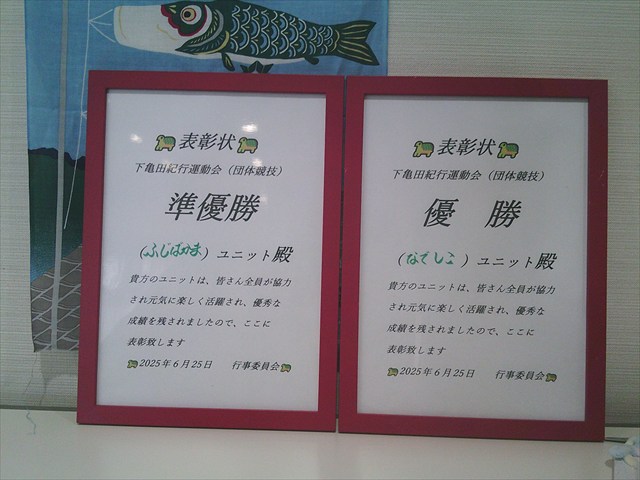 表彰状
下亀田紀行運動会（団体競技）
準優勝
（ふじばかま）ユニット殿
貴方のユニットは、皆さん全員が協力
され元気に楽しく活躍され、優秀な
成績を残されましたので、ここに
表彰致します
2025年6月25日 行事委員会
表彰状
下亀田紀行運動会（団体競技）
優 勝
（なでしこ）ユニット殿
貴方のユニットは、皆さん全員が協力
され元気に楽しく活躍され、優秀な
成績を残されましたので、ここに
表彰致します
2025年6月25日 行事委員会